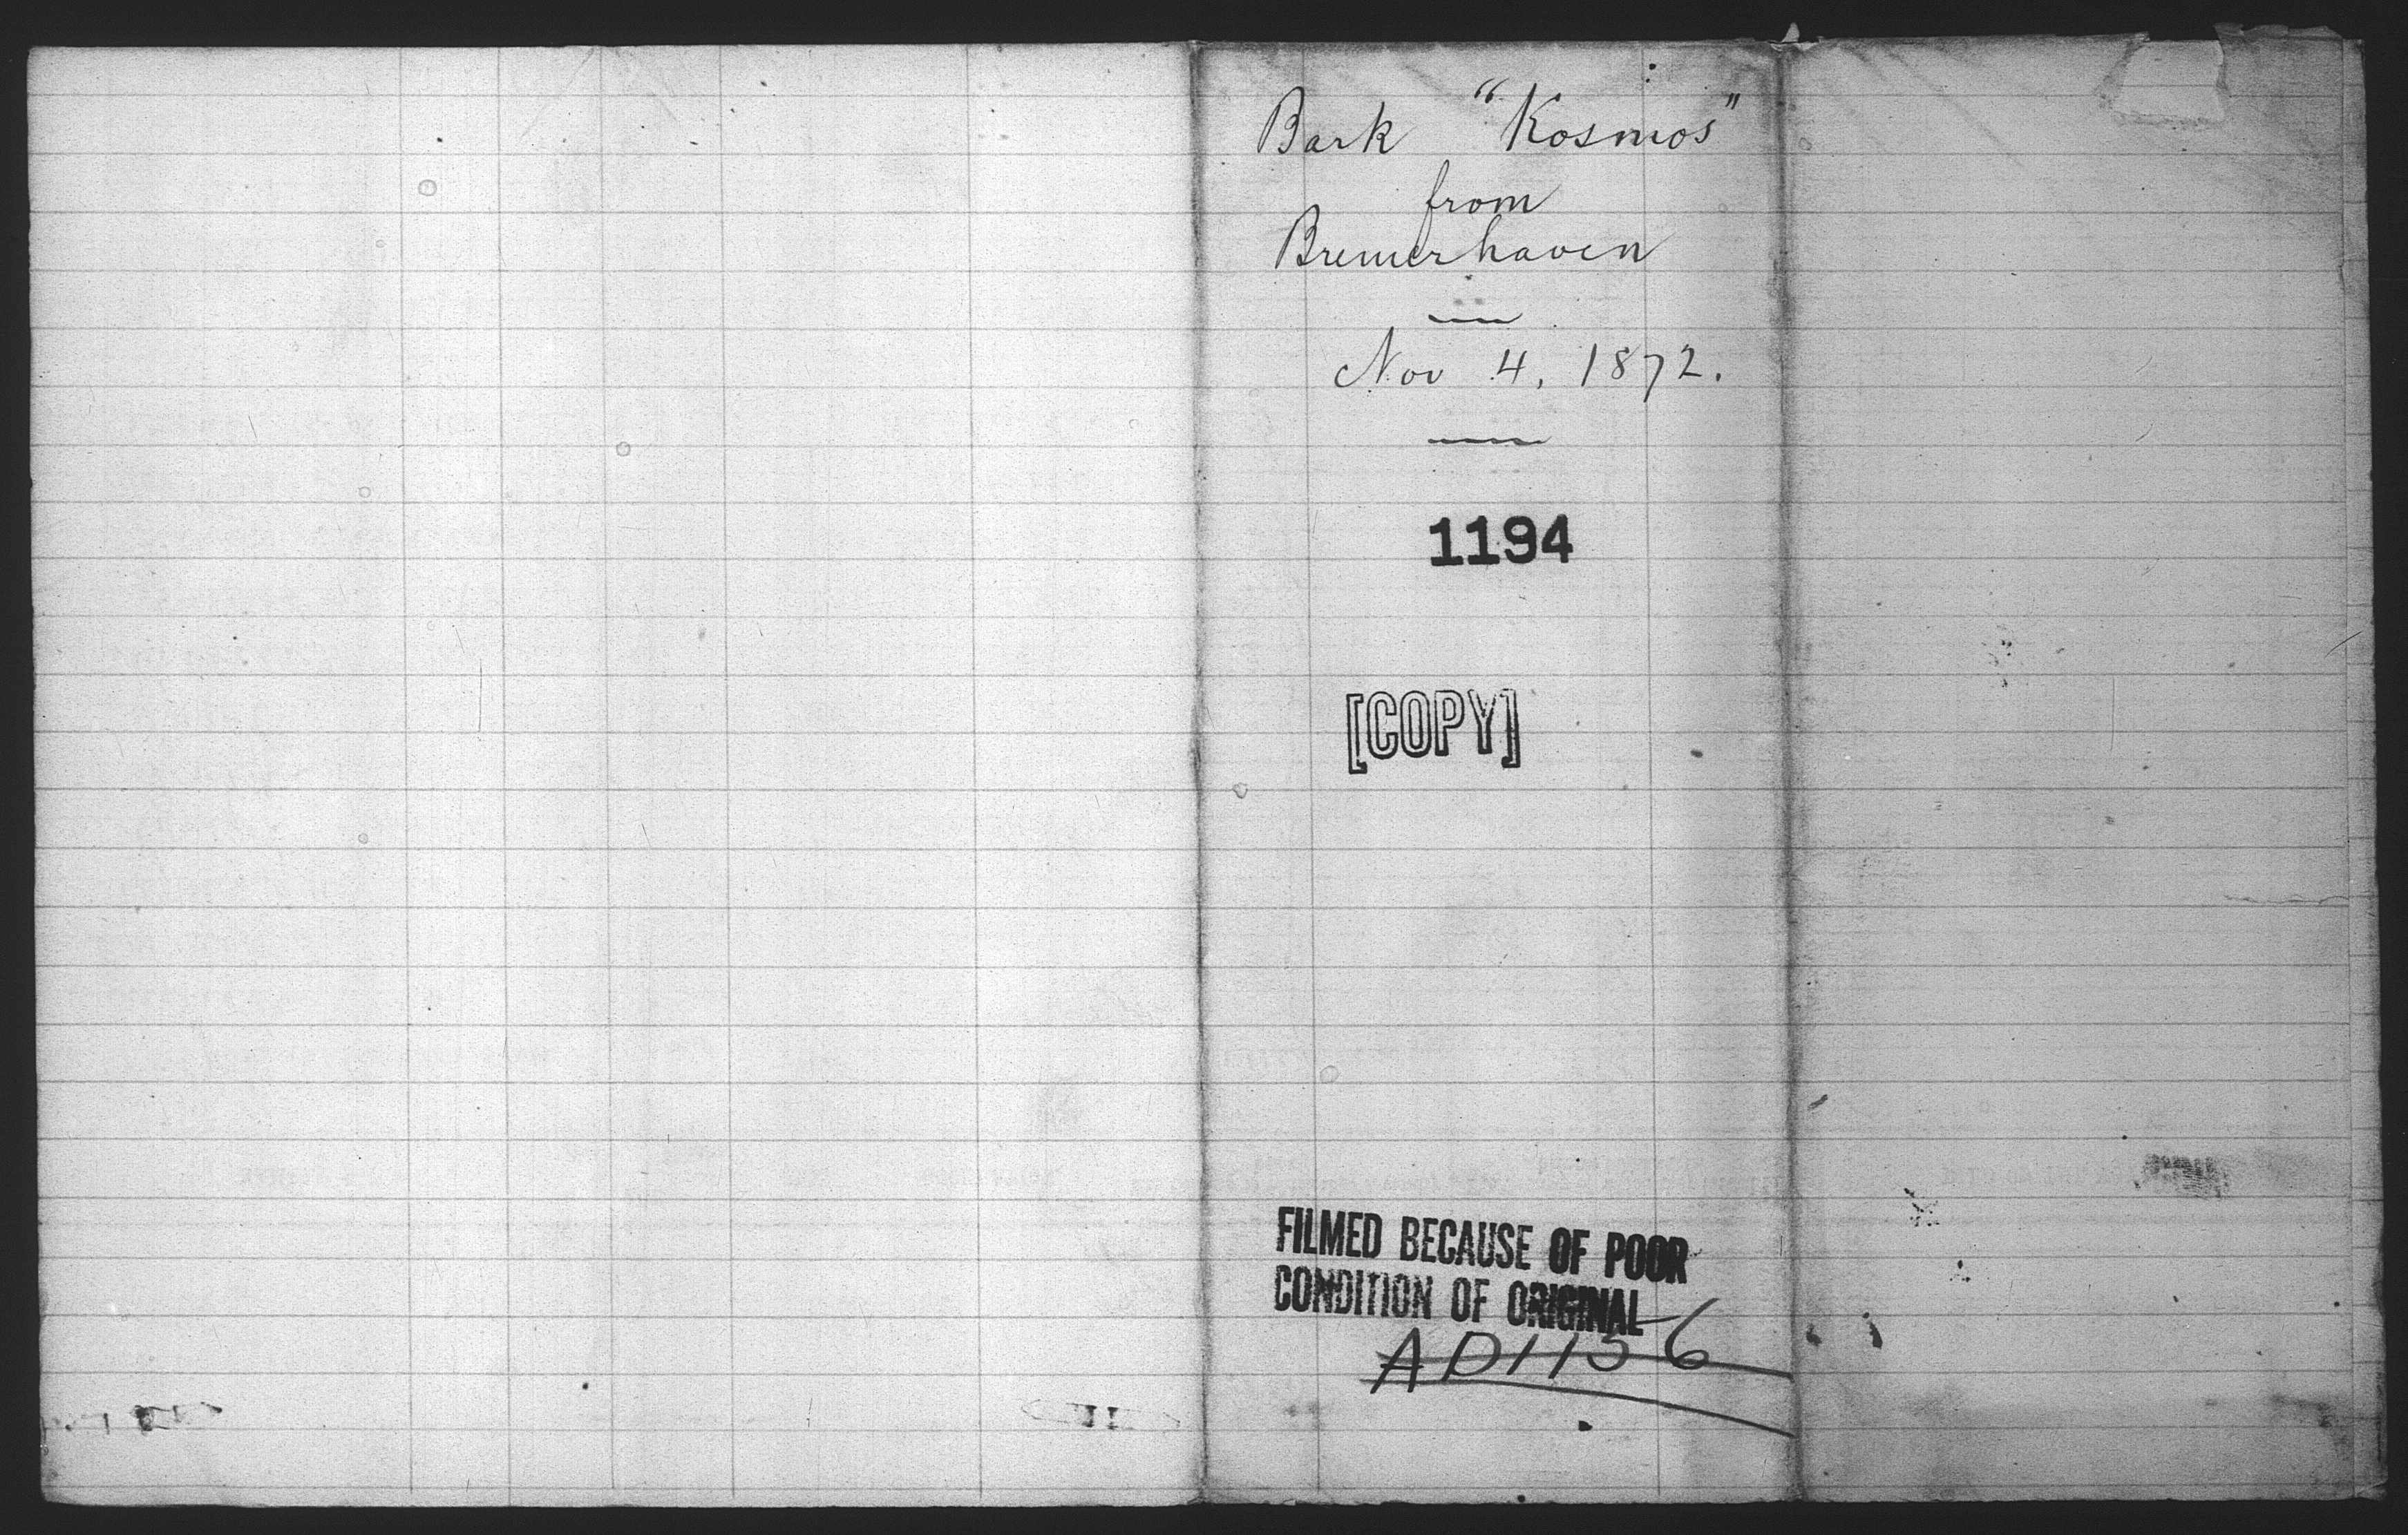 Bark "Kosmos"
from
Bremerhaven
Nov 4, 1872.
1194
[COPY]
FILMED BECAUSE OF POOR
CONDITION OF ORIGINAL
AD1156